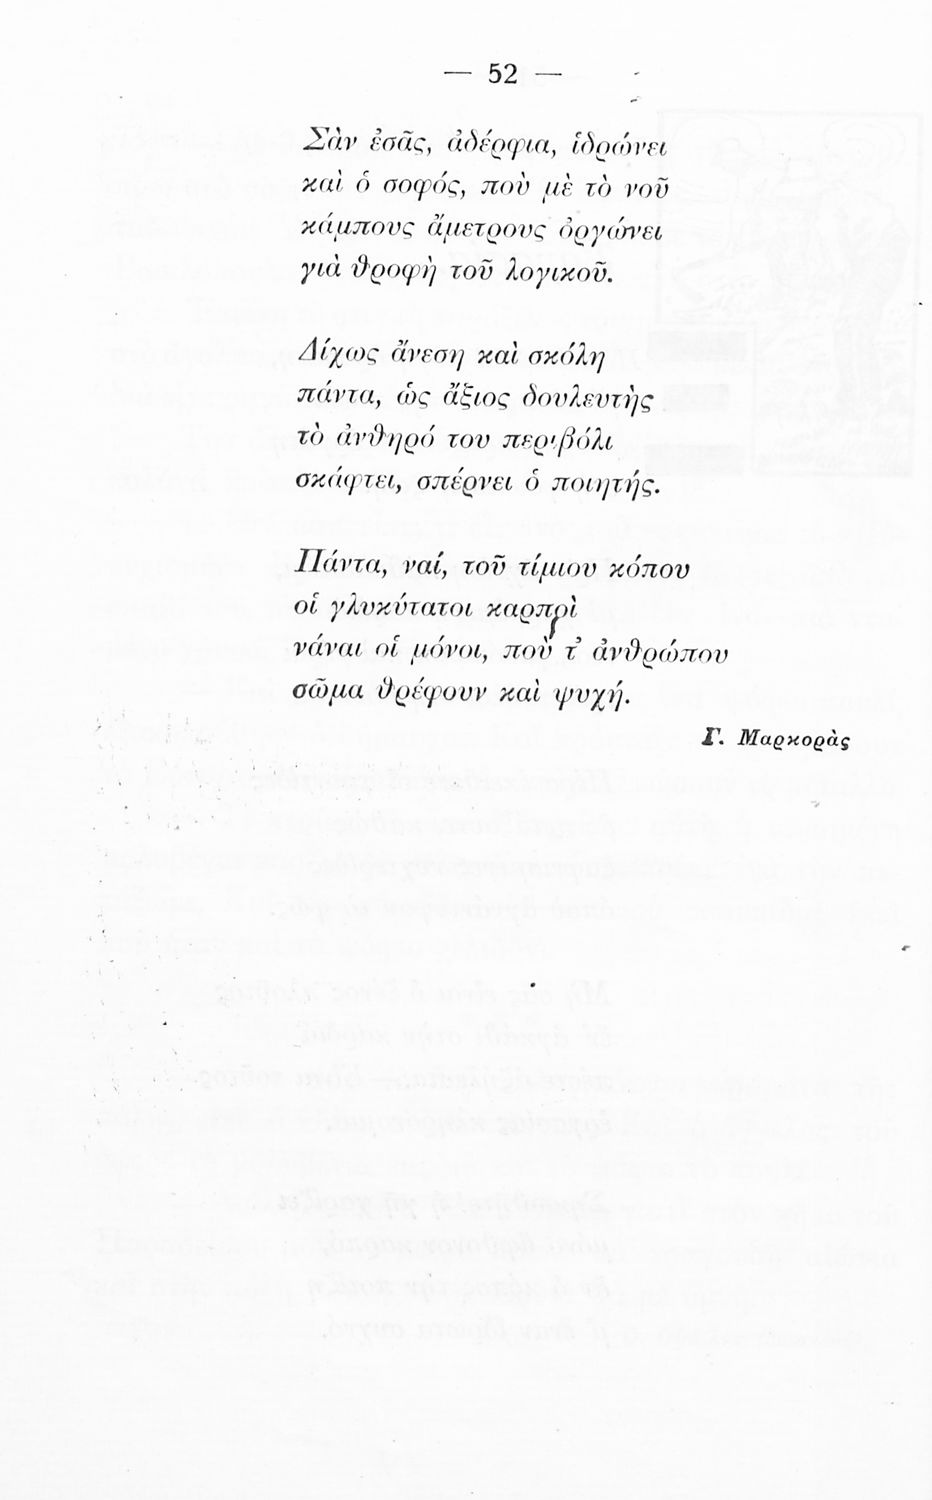 — 52 —
Σὰν ἐσᾶς, ἀδέρφια, ἱδρώνει
καὶ ὁ σοφός, ποὺ μὲ τὸ νοῦ
κάμπους ἄμετρους ὀργώνει
γιὰ θροφὴ τοῦ λογικοῦ.
Δίχως ἄνεση καὶ σκόλη
πάντα, ὡς ἄξιος δουλευτὴς
τὸ ἀνθηρό του περιβόλι
σκάφτει, σπέρνει ὁ ποιητής.
Πάντα, ναί, τοῦ τίμιου κόπου
οἱ γλυκύτατοι καρποὶ
νάναι οἱ μόνοι, ποὺ τ' ἀνθρώπου
σῶμα θρέφουν καὶ ψυχή.
Γ. Μαρκορὰς